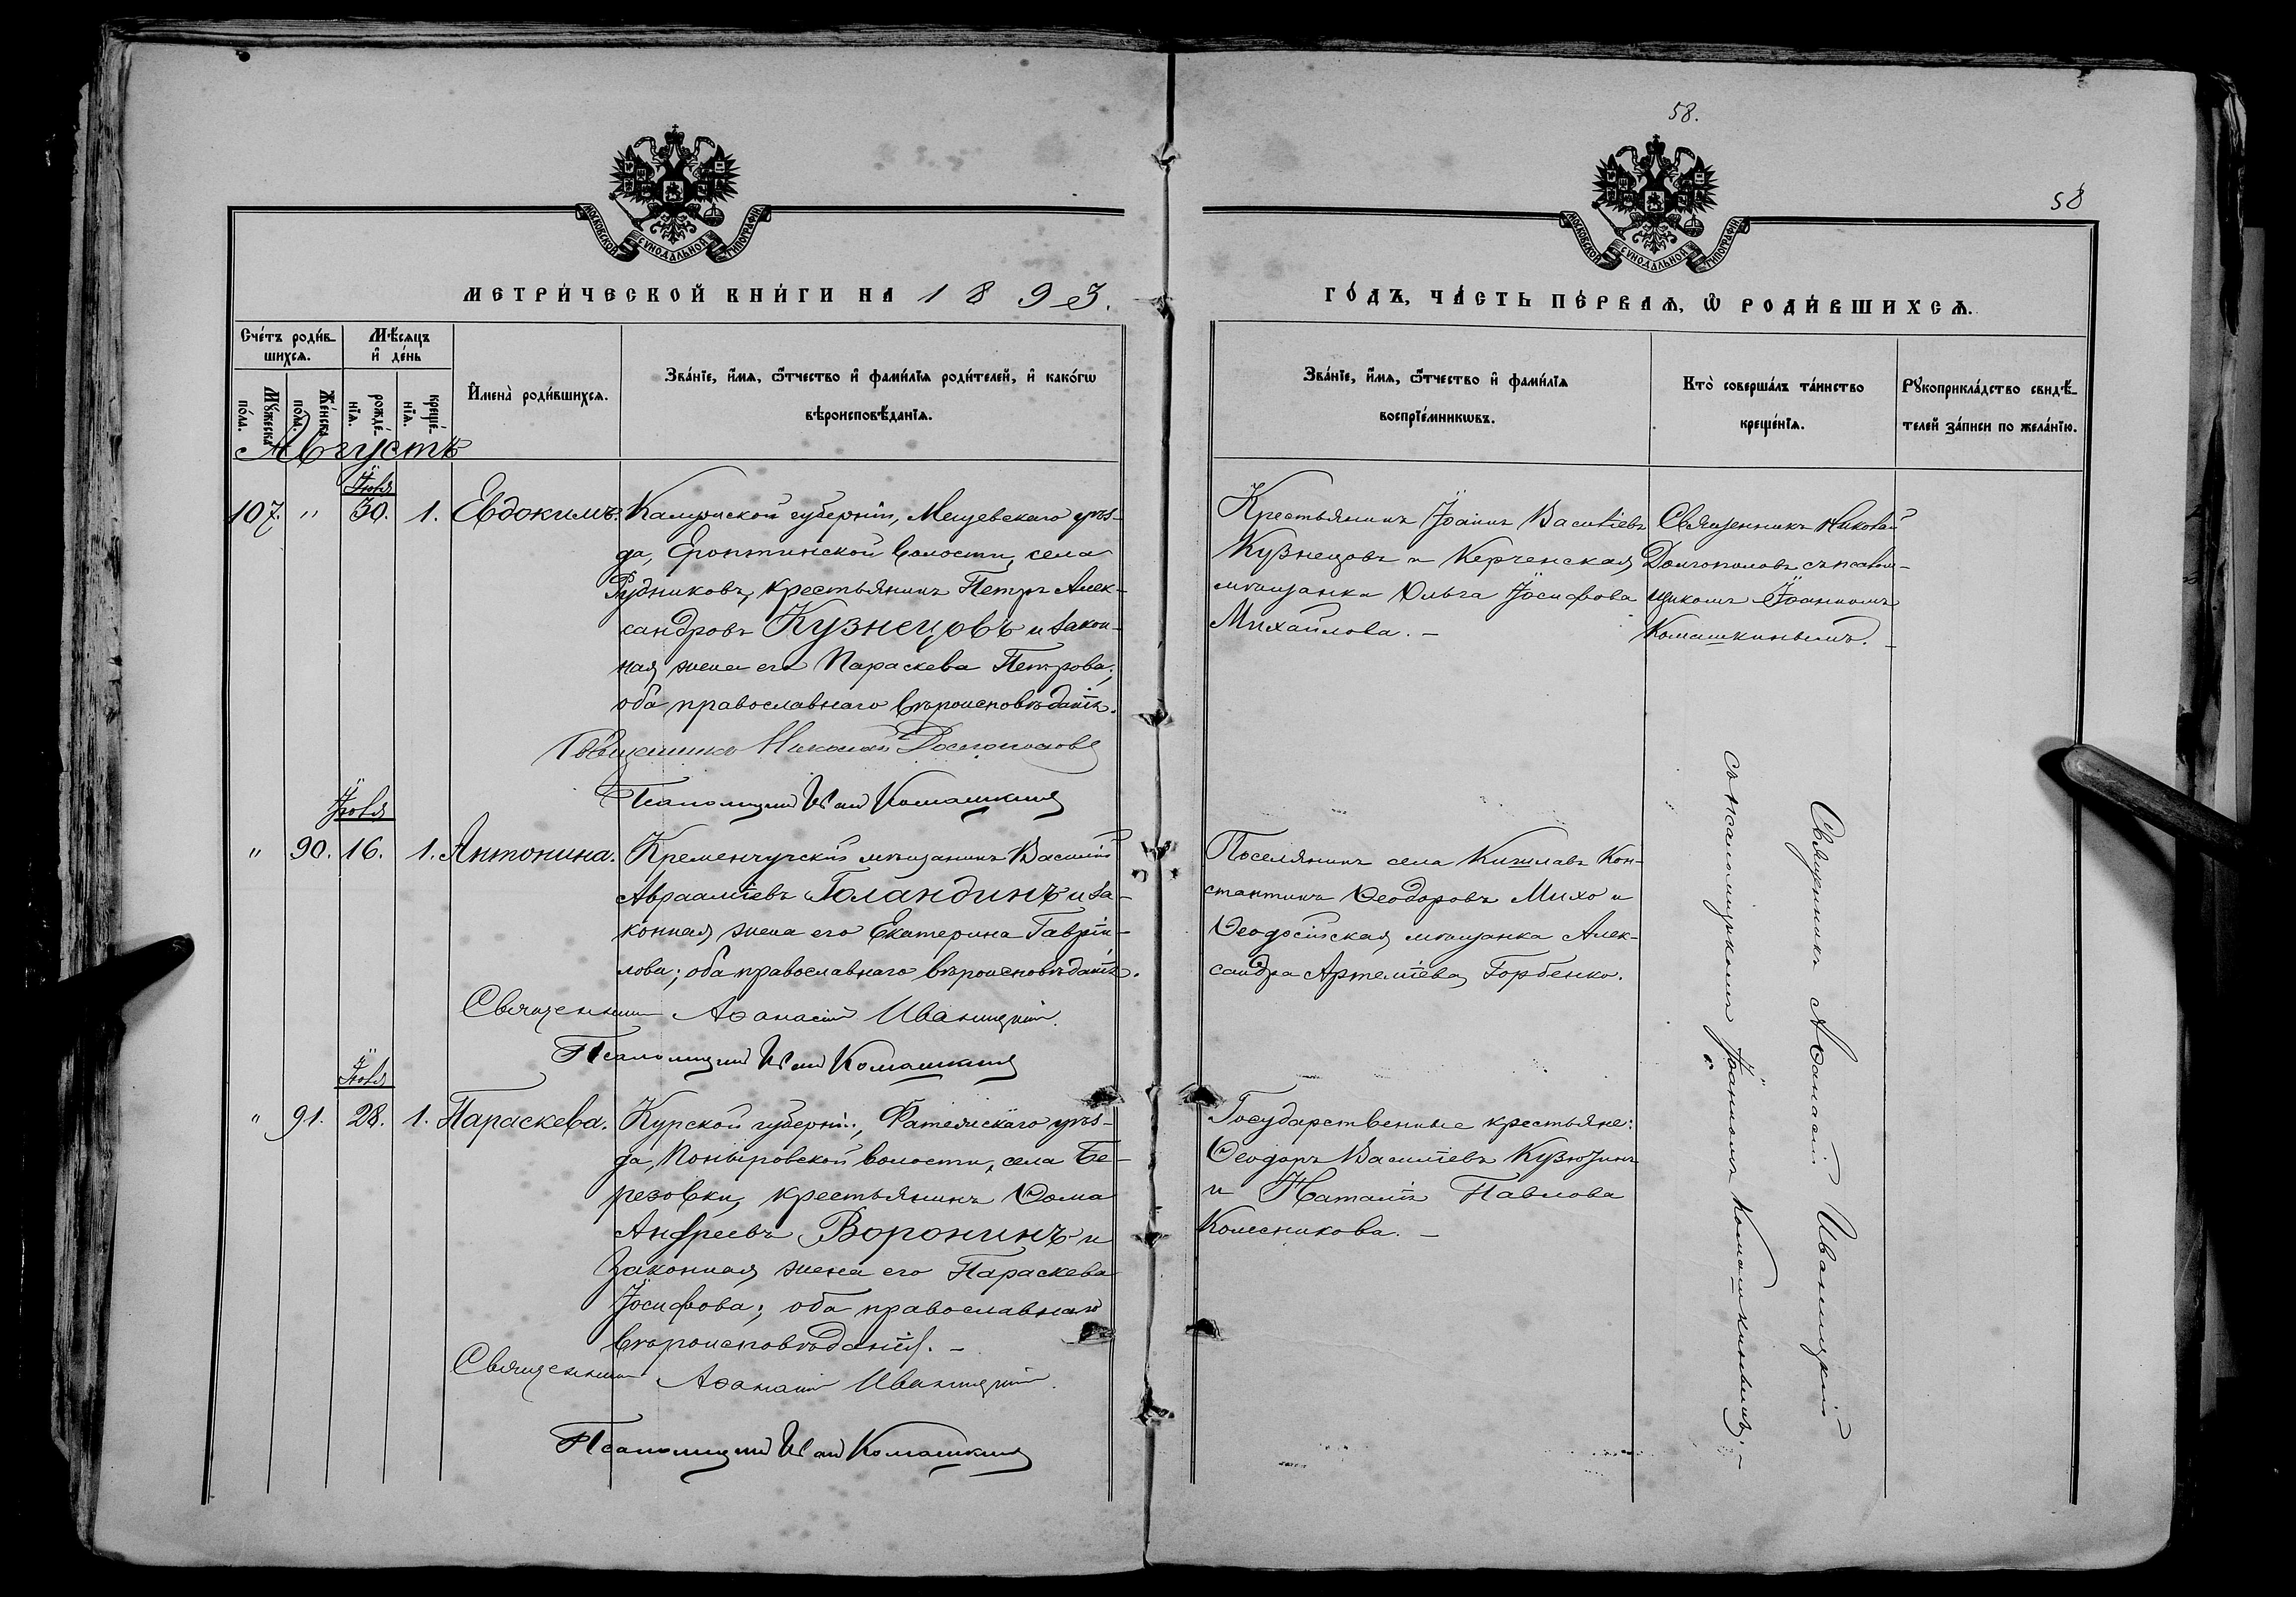 58.
58
МОСКОВСКОЙ СѴНОДАЛЬНОЙ ТИПОГРАФІИ
МОСКОВСКОЙ СѴНОДАЛЬНОЙ ТИПОГРАФІИ
МЕТРИ́ЧЕСКОЙ КНИ́ГИ НА 1893.
ГО́ДЪ, ЧА́СТЬ ПЕ́РВАѦ, Ѽ РОДИ́ВШИХСѦ.
Сче́тъ роди́в-
шихсѧ.
Мѣ́сѧцъ
и҆ де́нь
Мꙋ́жеска
по́ла.
Же́нска
по́ла.
рожде́-
нїѧ.
креще́-
нїѧ.
И҆мена̀ роди́вшихсѧ.
Зва́нїе, и҆́мѧ, ѻ҆́тчество и҆ фами́лїѧ роди́телей, и҆ како́гѡ
вѣроисповѣ́данїѧ.
Зва́нїе, и҆́мѧ, ѻ҆́тчество и҆ фами́лїѧ
воспрїе́мникѡвъ.
Кто̀ соверша́лъ та́инство
креще́нїѧ.
Рꙋкоприкла́дство свидѣ́-
телей за́писи по жела́нїю.
Августъ
Іюля
107. " 30. 1. Евдокимъ.
Калужской губерніи, Мещевскаго уѣз-
да, волости, села
Рудниковъ, крестьянинъ Петръ Алек-
сандровъ Кузнецовъ и закон-
ная жена его Параскева Петрова;
оба православнаго вѣроисповѣданія.
Священникъ Николай Долгополовъ
Псаломщикъ Иван Комашкинъ
Крестьянинъ Іоаннъ Васильевъ
Кузнецовъ и Керченская
мѣщанка Ольга Іосифова
Михайлова. –
Священникъ Николай
Долгополовъ съ псалом-
щикомъ Іоанномъ
Комашкинымъ. –
Іюля
" 90. 16. 1. Антонина.
Кременчугскій мѣщанинъ Василій
Аврааміевъ Голандинъ и за-
конная жена его Екатерина Гаврии-
лова; оба православнаго вѣроисповѣданія.
Священникъ Аѳанасій Иваницкій.
Псаломщикъ Иван Комашкинъ
Поселянинъ села Кишлавъ Кон-
стантинъ Ѳеодоровъ Михо и
Ѳеодосійская мѣщанка Алек-
сандра Артеміева Горбенко.
Іюля
" 91. 28. 1. Параскева.
Курской губерніи, Фатежскаго уѣз-
да, Поныровской волости, села Бе-
резовки, крестьянинъ Ѳома
Андреевъ Воронинъ и
законная жена его Параскева
Іосифова; оба православнаго
вѣроисповѣданія. –
Священникъ Аѳанасій Иваницкій.
Псаломщикъ Иван Комашкинъ
Государственные крестьяне:
Ѳеодоръ Василіевъ
и Наталія Павлова
Колесникова. –
Священникъ Аѳанасій Иваницкій
съ псаломщикомъ Іоанномъ Комашкинымъ. –